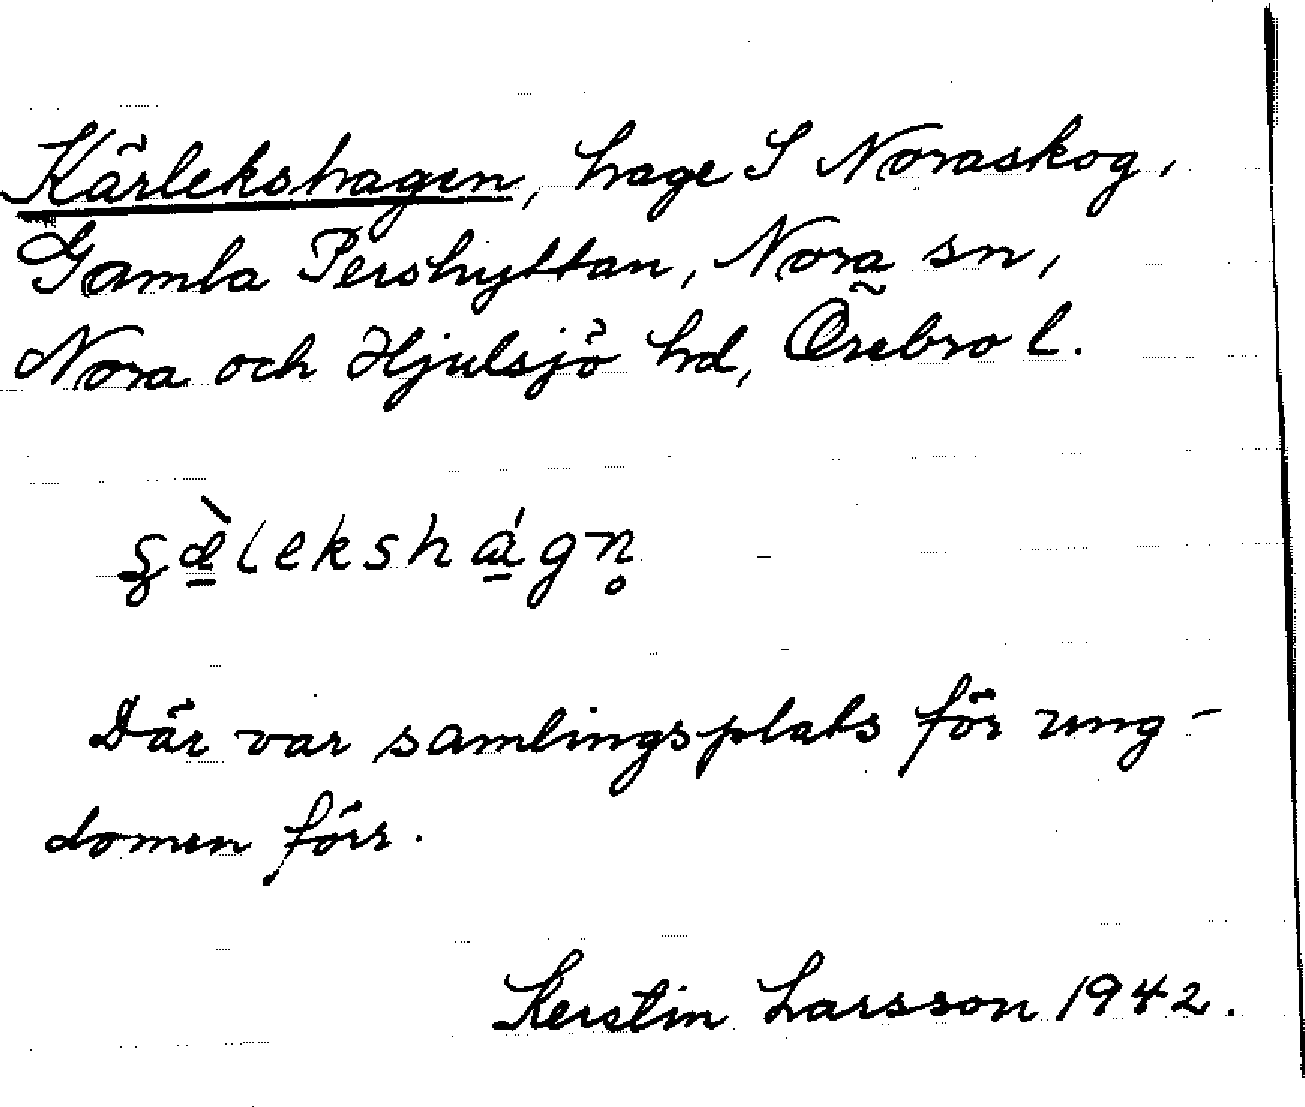 Kärlekshagen, hage S Noraskog,
Gamla Pershyttan, Nora sn,
Nora och Hjulsjö hd, Örebro l.
ʂæ̠̀lekshɑ̠́gn̥
Där var samlingsplats för ung-
domen förr.
Kerstin Larsson 1942.